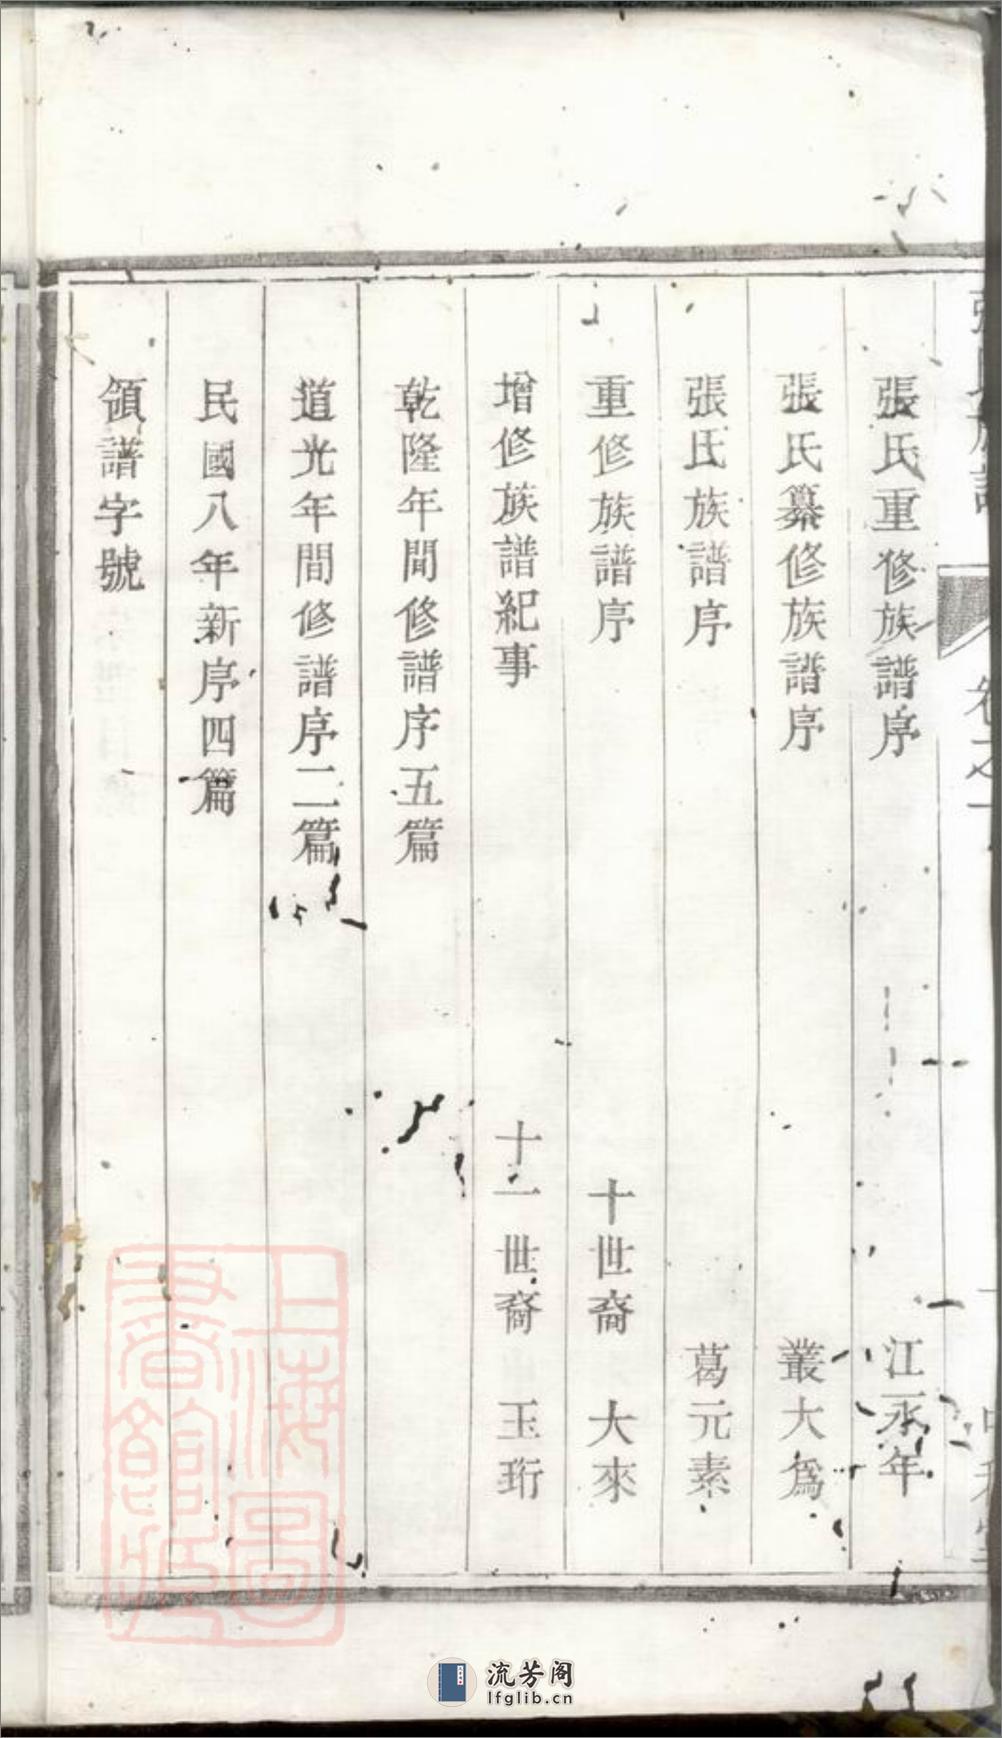 張氏族譜 卷之一
張氏重修族譜序 江永年
張氏纂修族譜序 叢大為
張氏族譜序 葛元素
重修族譜序 十世裔 大來
增修族譜紀事 十一世裔 玉珩
乾隆年間修譜序五篇
道光年間修譜序二篇
民國八年新序四篇
領譜字號
上海圖書館藏
流芳阁
lfglib.cn